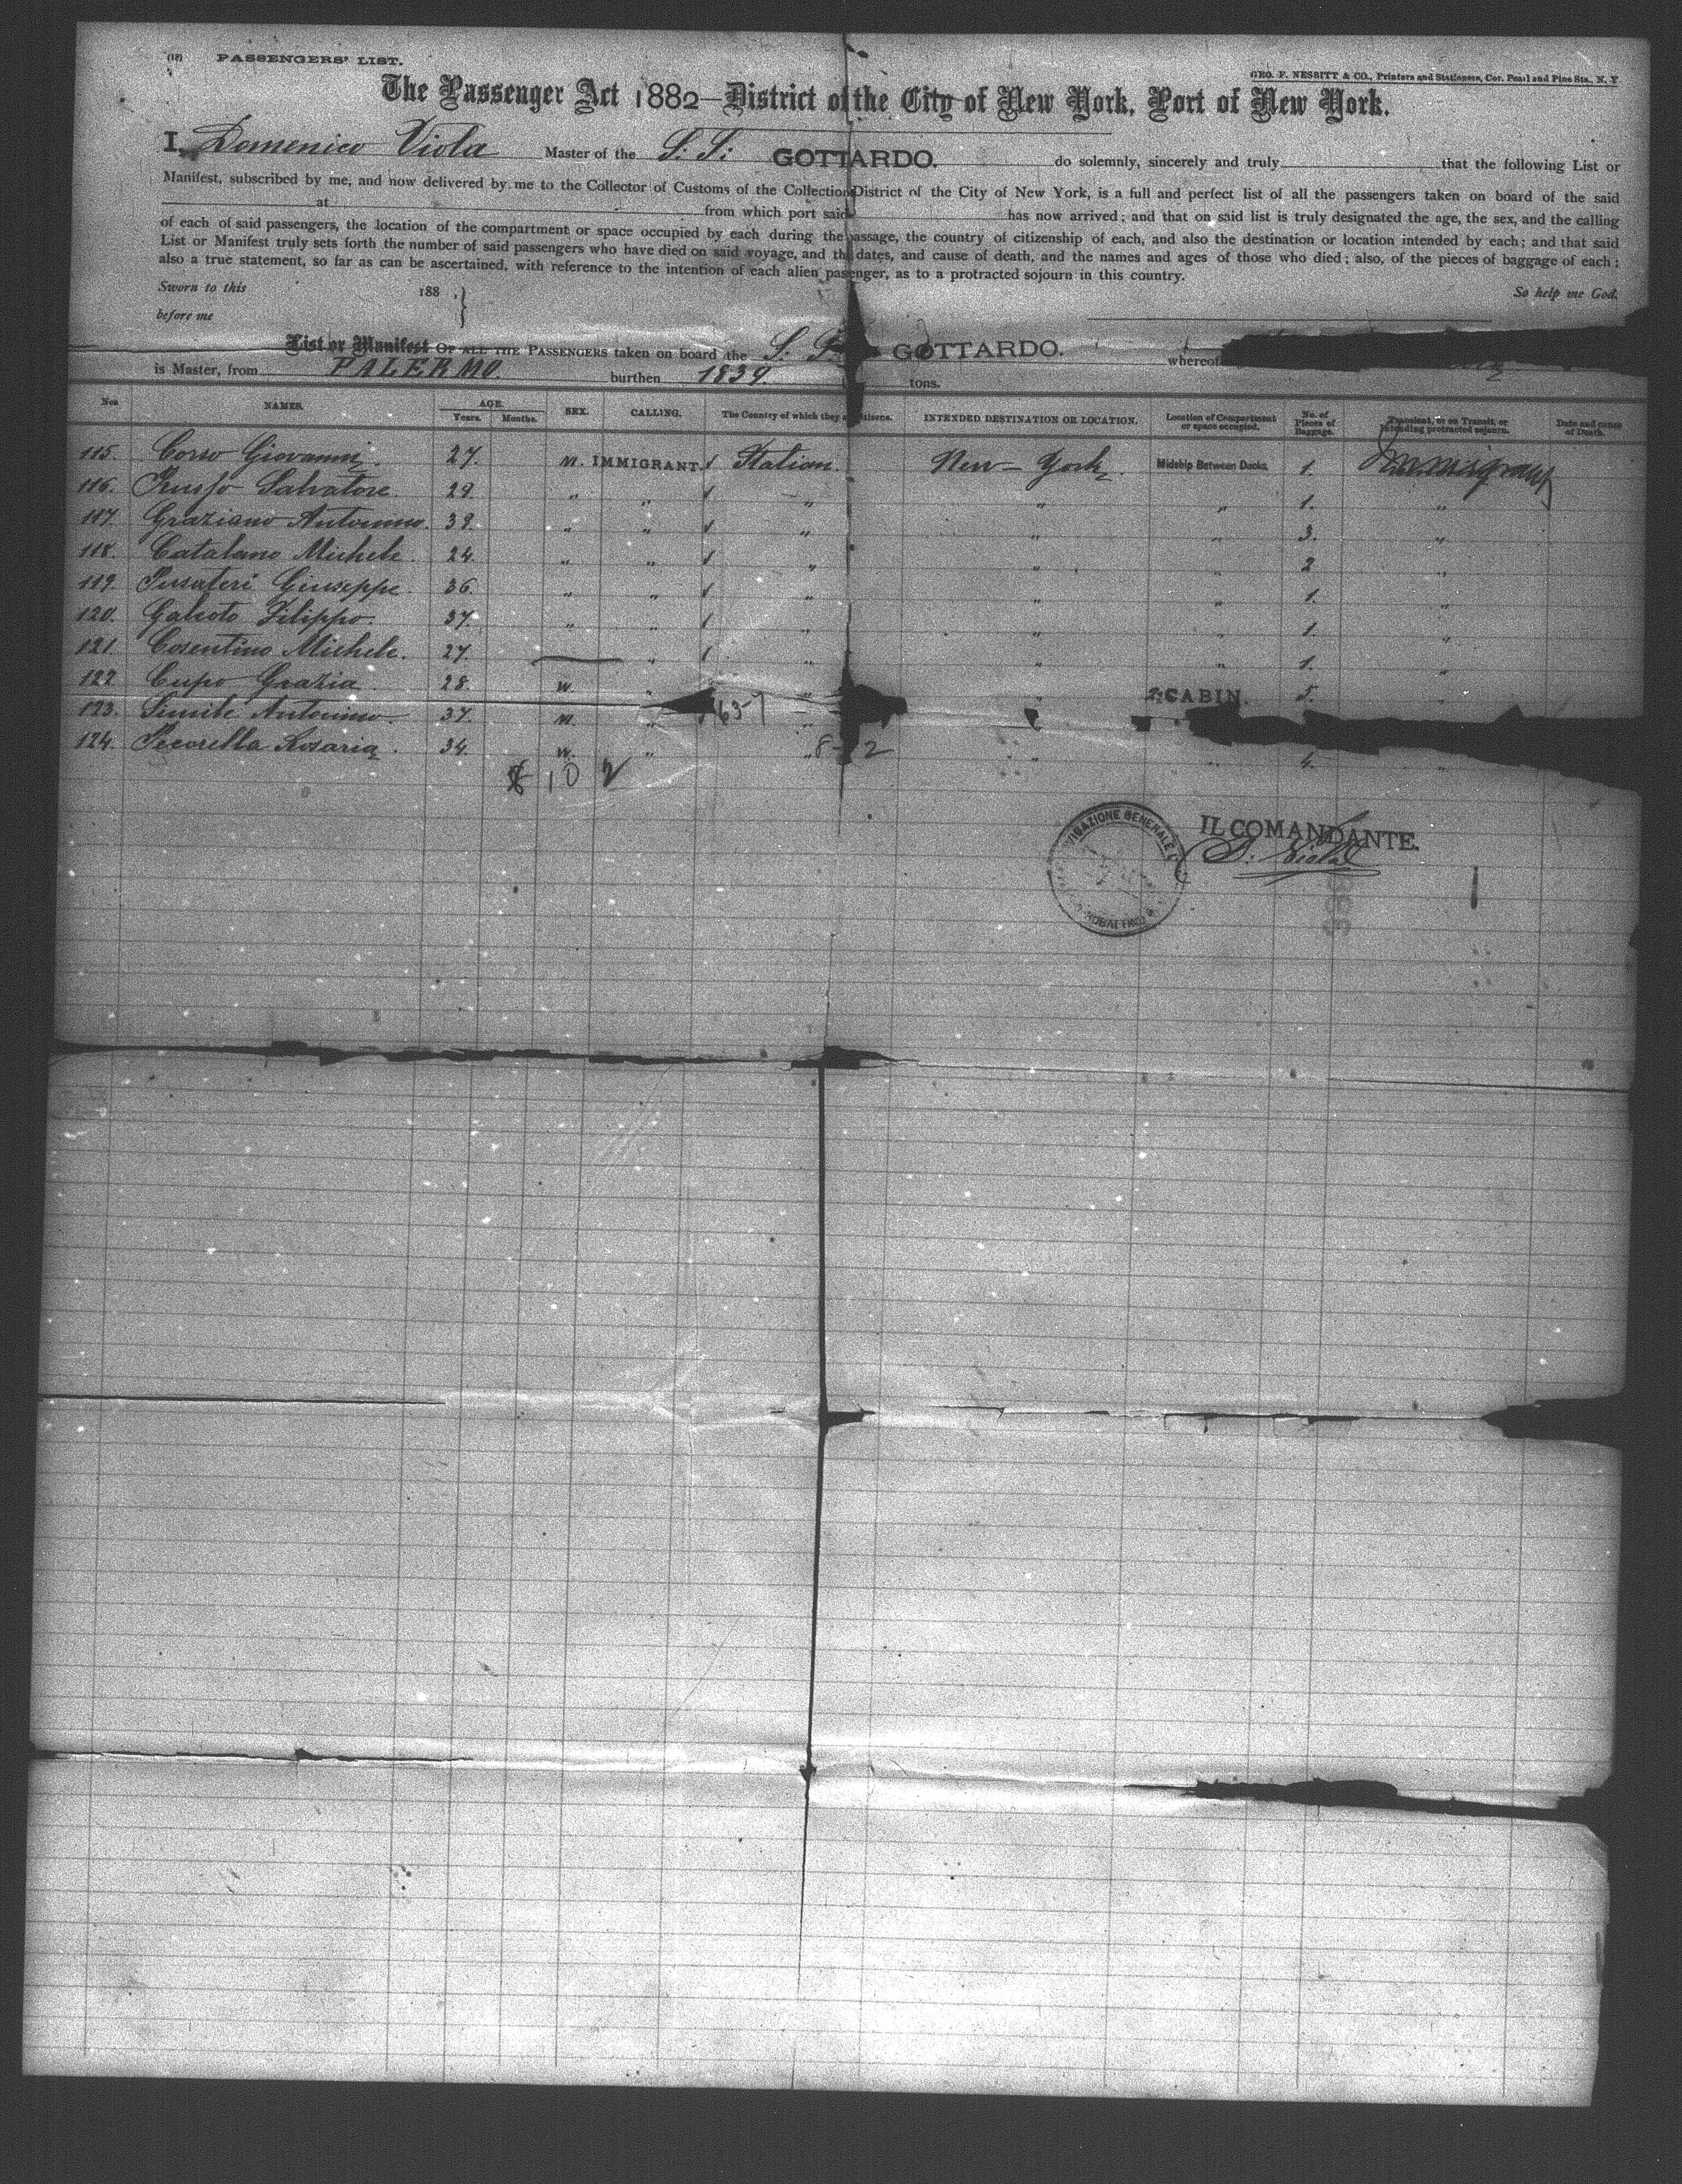 PASSENGERS' LIST.
GEO. F. NESBITT & CO., Printers and Stationers, Cor. Pearl and Pine Sts., N. Y.
The Passenger Act 1882—District of the City of New York, Port of New York.
I, Domenico Viola Master of the S. S. GOTTARDO. do solemnly, sincerely and truly that the following List or
Manifest, subscribed by me, and now delivered by me to the Collector of Customs of the Collection District of the City of New York, is a full and perfect list of all the passengers taken on board of the said
at from which port said has now arrived; and that on said list is truly designated the age, the sex, and the calling
of each of said passengers, the location of the compartment or space occupied by each during the passage, the country of citizenship of each, and also the destination or location intended by each; and that said
List or Manifest truly sets forth the number of said passengers who have died on said voyage, and the dates, and cause of death, and the names and ages of those who died; also, of the pieces of baggage of each;
also a true statement, so far as can be ascertained, with reference to the intention of each alien passenger, as to a protracted sojourn in this country.
Sworn to this 188 So help me God.
before me
List or Manifest OF ALL THE PASSENGERS taken on board the S. GOTTARDO. whereof
is Master, from PALERMO. burthen 1839. tons.
Nos NAMES. AGE. Years. Months. SEX. CALLING. The Country of which they are Citizens. INTENDED DESTINATION OR LOCATION. Location of Compartment or space occupied. No. of Pieces of Baggage. Transient, or on Transit, or intending protracted sojourn. Date and cause of Death.
115. Corso Giovanni. 27. M. IMMIGRANT. Italian. New-York. Midship Between Decks. 1. Immigrant
116. Salvatore. 29. " " " " " 1. "
117. Graziano Antonino. 39. " " " " " 3. "
118. Catalano Michele. 24. " " " " " 2 "
119. Pusateri Giuseppe. 36. " " " " " 1. "
120. Galioto Filippo. 37. " " " " " 1. "
121. Cosentino Michele. 27. " " " " 1. "
122 Cupo Grazia. 28. W. " " " 2. CABIN. 5. "
123. Simile Antonino. 37. M. "
124. Pecorella Rosaria. 34. W. " " " " 4. "
10
IL COMANDANTE.
D. Viola
NAVIGAZIONE GENERALE
RUBATTINO